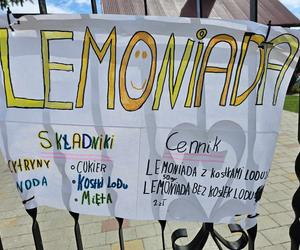 LEMONIADA
SKŁADNIKI
CYTRYNY
WODA
• CUKIER
• KOSTKI LODU
• MIĘTA
Cennik
LEMONIADA Z KOSTKAMI LODU
LEMONIADA BEZ KOSTEK LODU
2zł